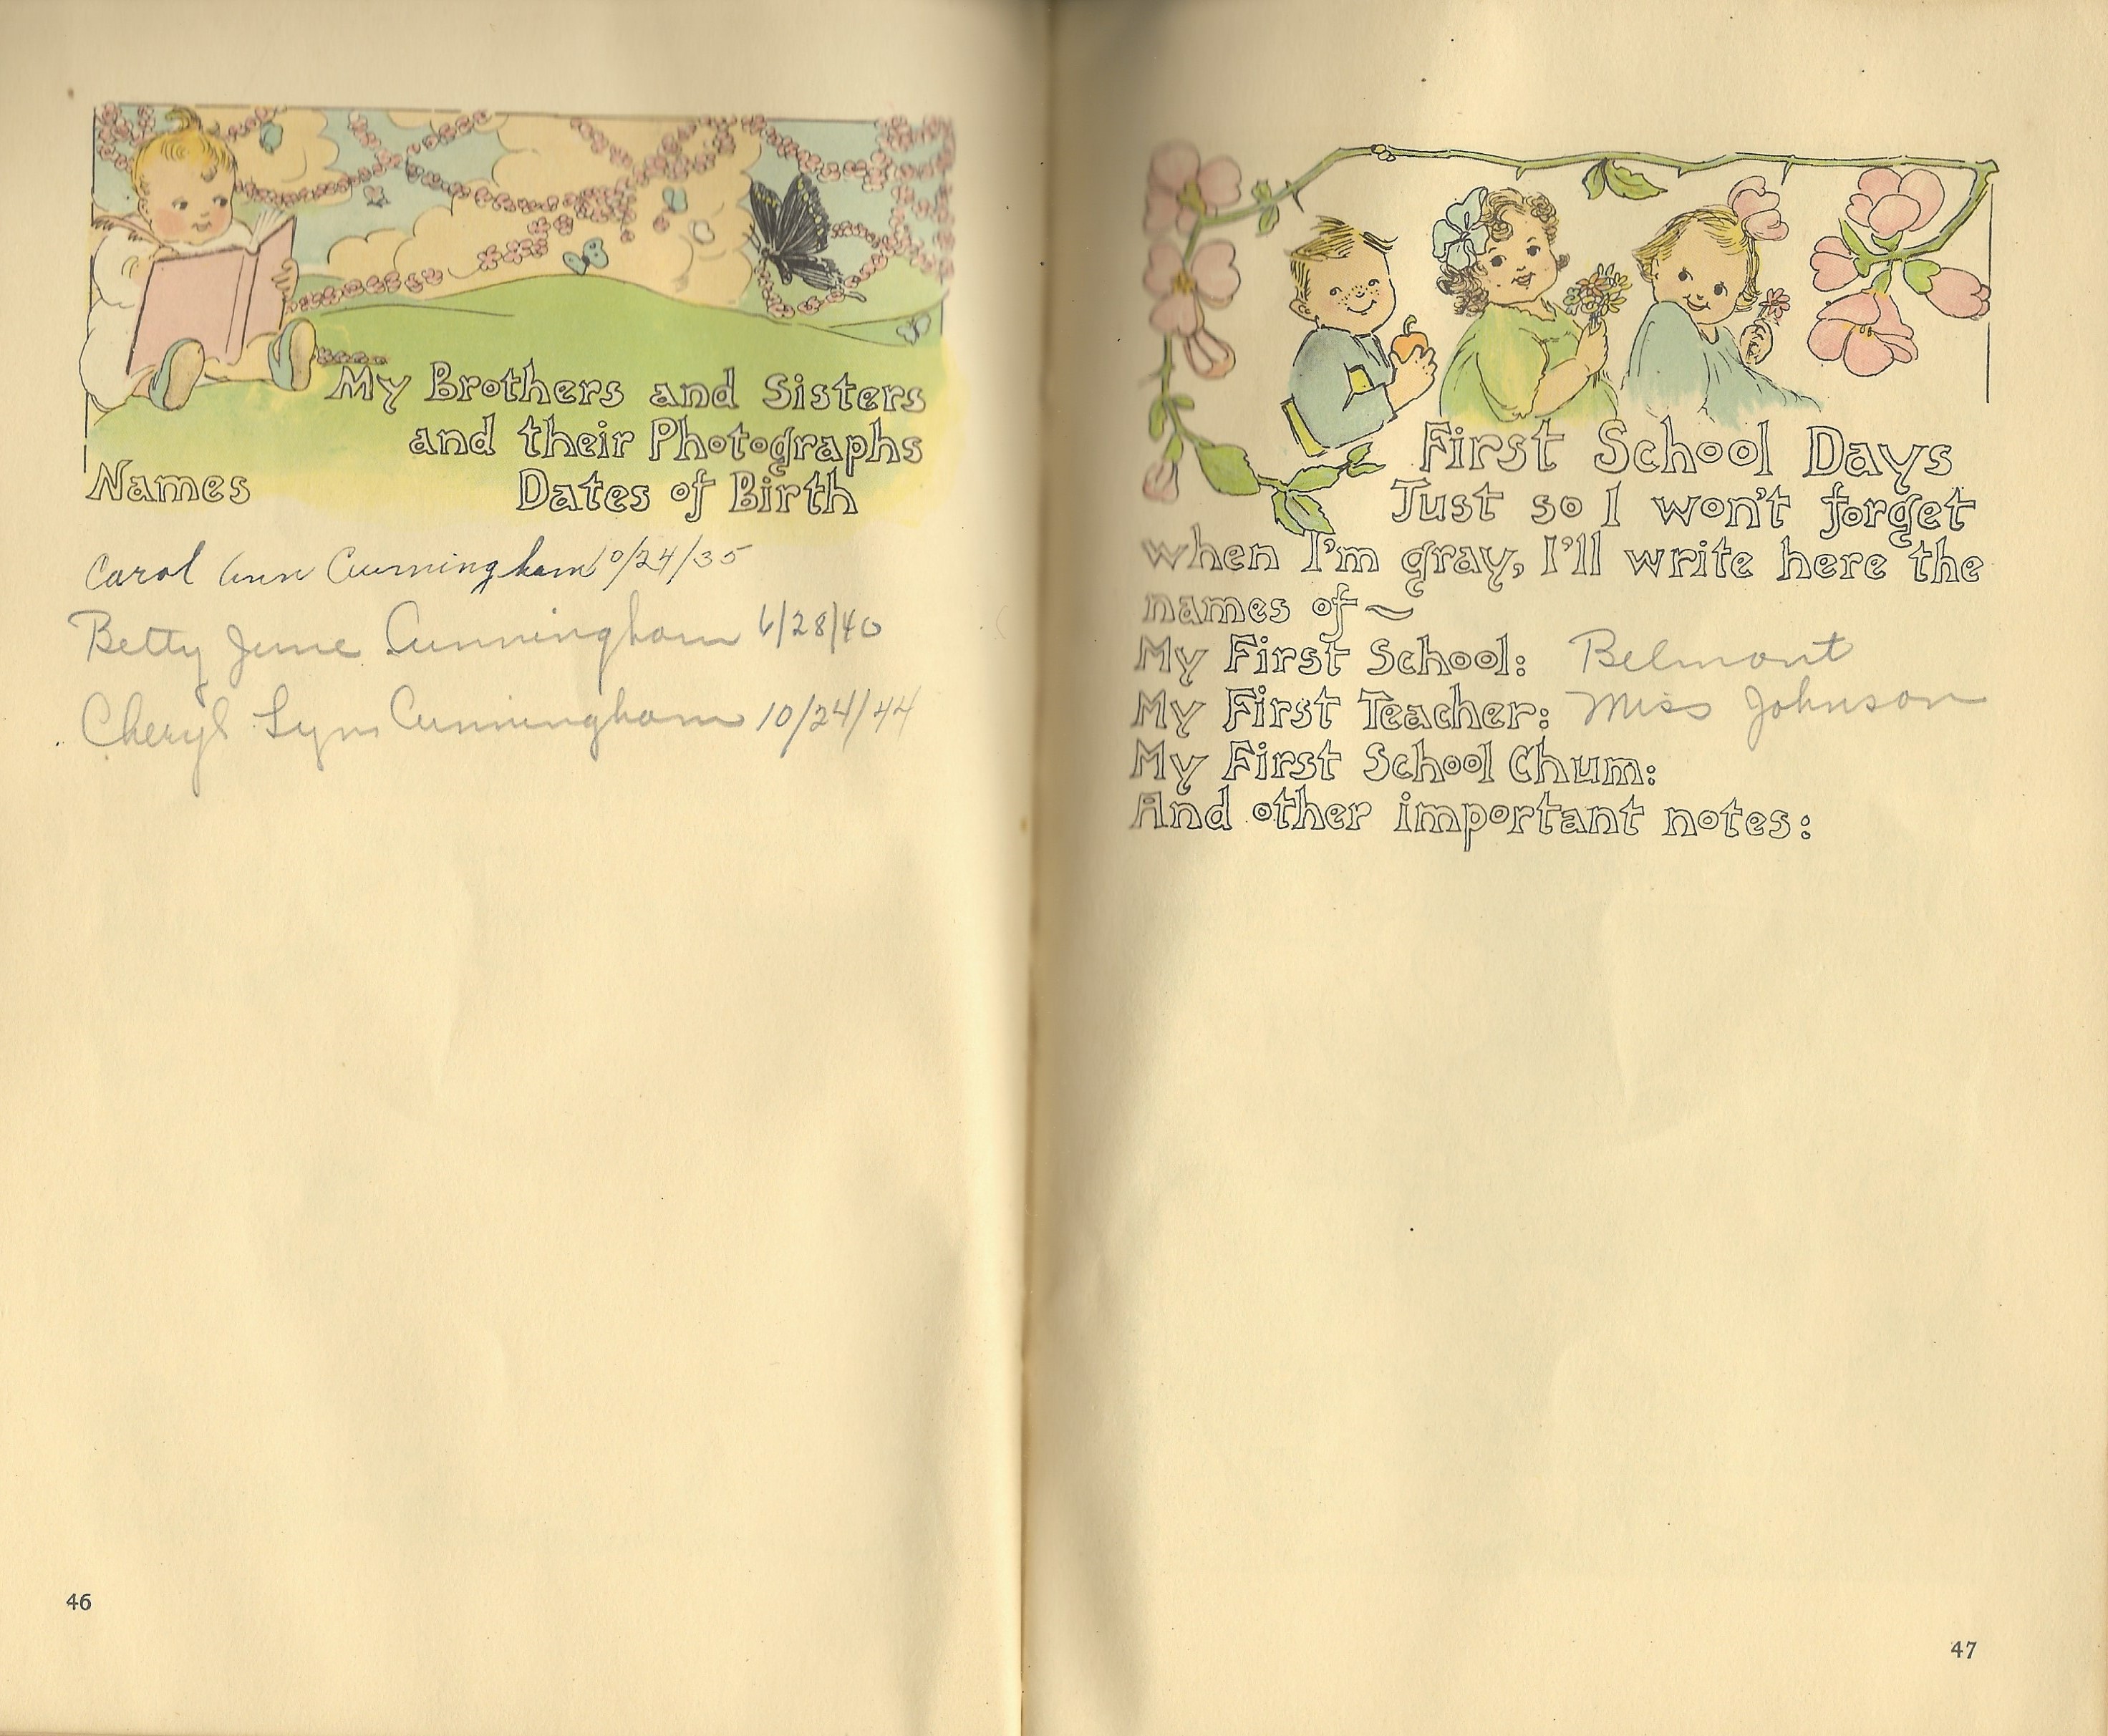 My Brothers and Sisters
and their Photographs
Names Dates of Birth
Carol Ann Cunningham 10/24/35
Betty June Cunningham 6/28/40
Cheryl Lynn Cunningham 10/24/44
46
First School Days
Just so I won't forget
when I'm gray, I'll write here the
names of ~
My First School: Belmont
My First Teacher: Miss Johnson
My First School Chum:
And other important notes:
47